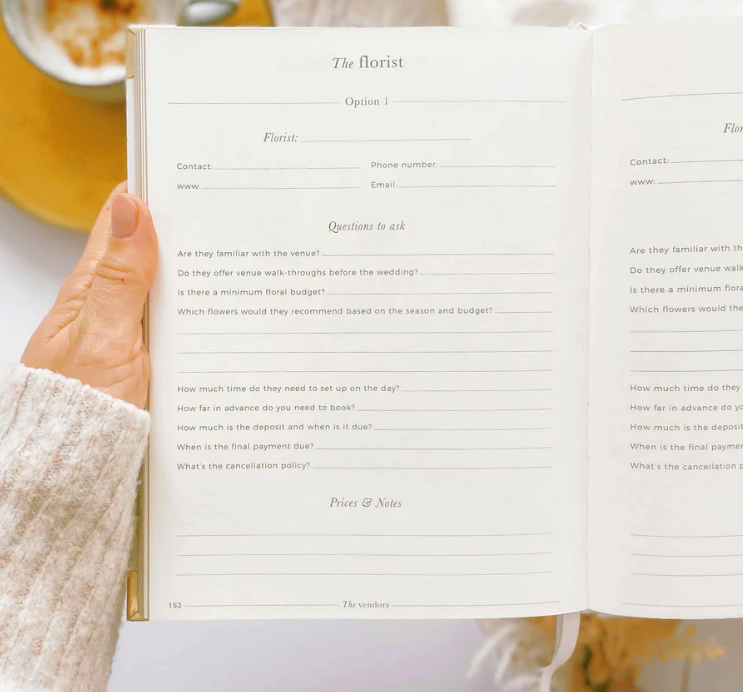 The florist
Option 1
Florist:
Contact: Phone number:
www: Email:
Questions to ask
Are they familiar with the venue?
Do they offer venue walk-throughs before the wedding?
Is there a minimum floral budget?
Which flowers would they recommend based on the season and budget?
How much time do they need to set up on the day?
How far in advance do you need to book?
How much is the deposit and when is it due?
When is the final payment due?
What's the cancellation policy?
Prices & Notes
152 The vendors
Flor
Contact:
www:
Are they familiar with th
Do they offer venue walk
Is there a minimum flora
Which flowers would the
How much time do they
How far in advance do yo
How much is the deposit
When is the final paymen
What's the cancellation p